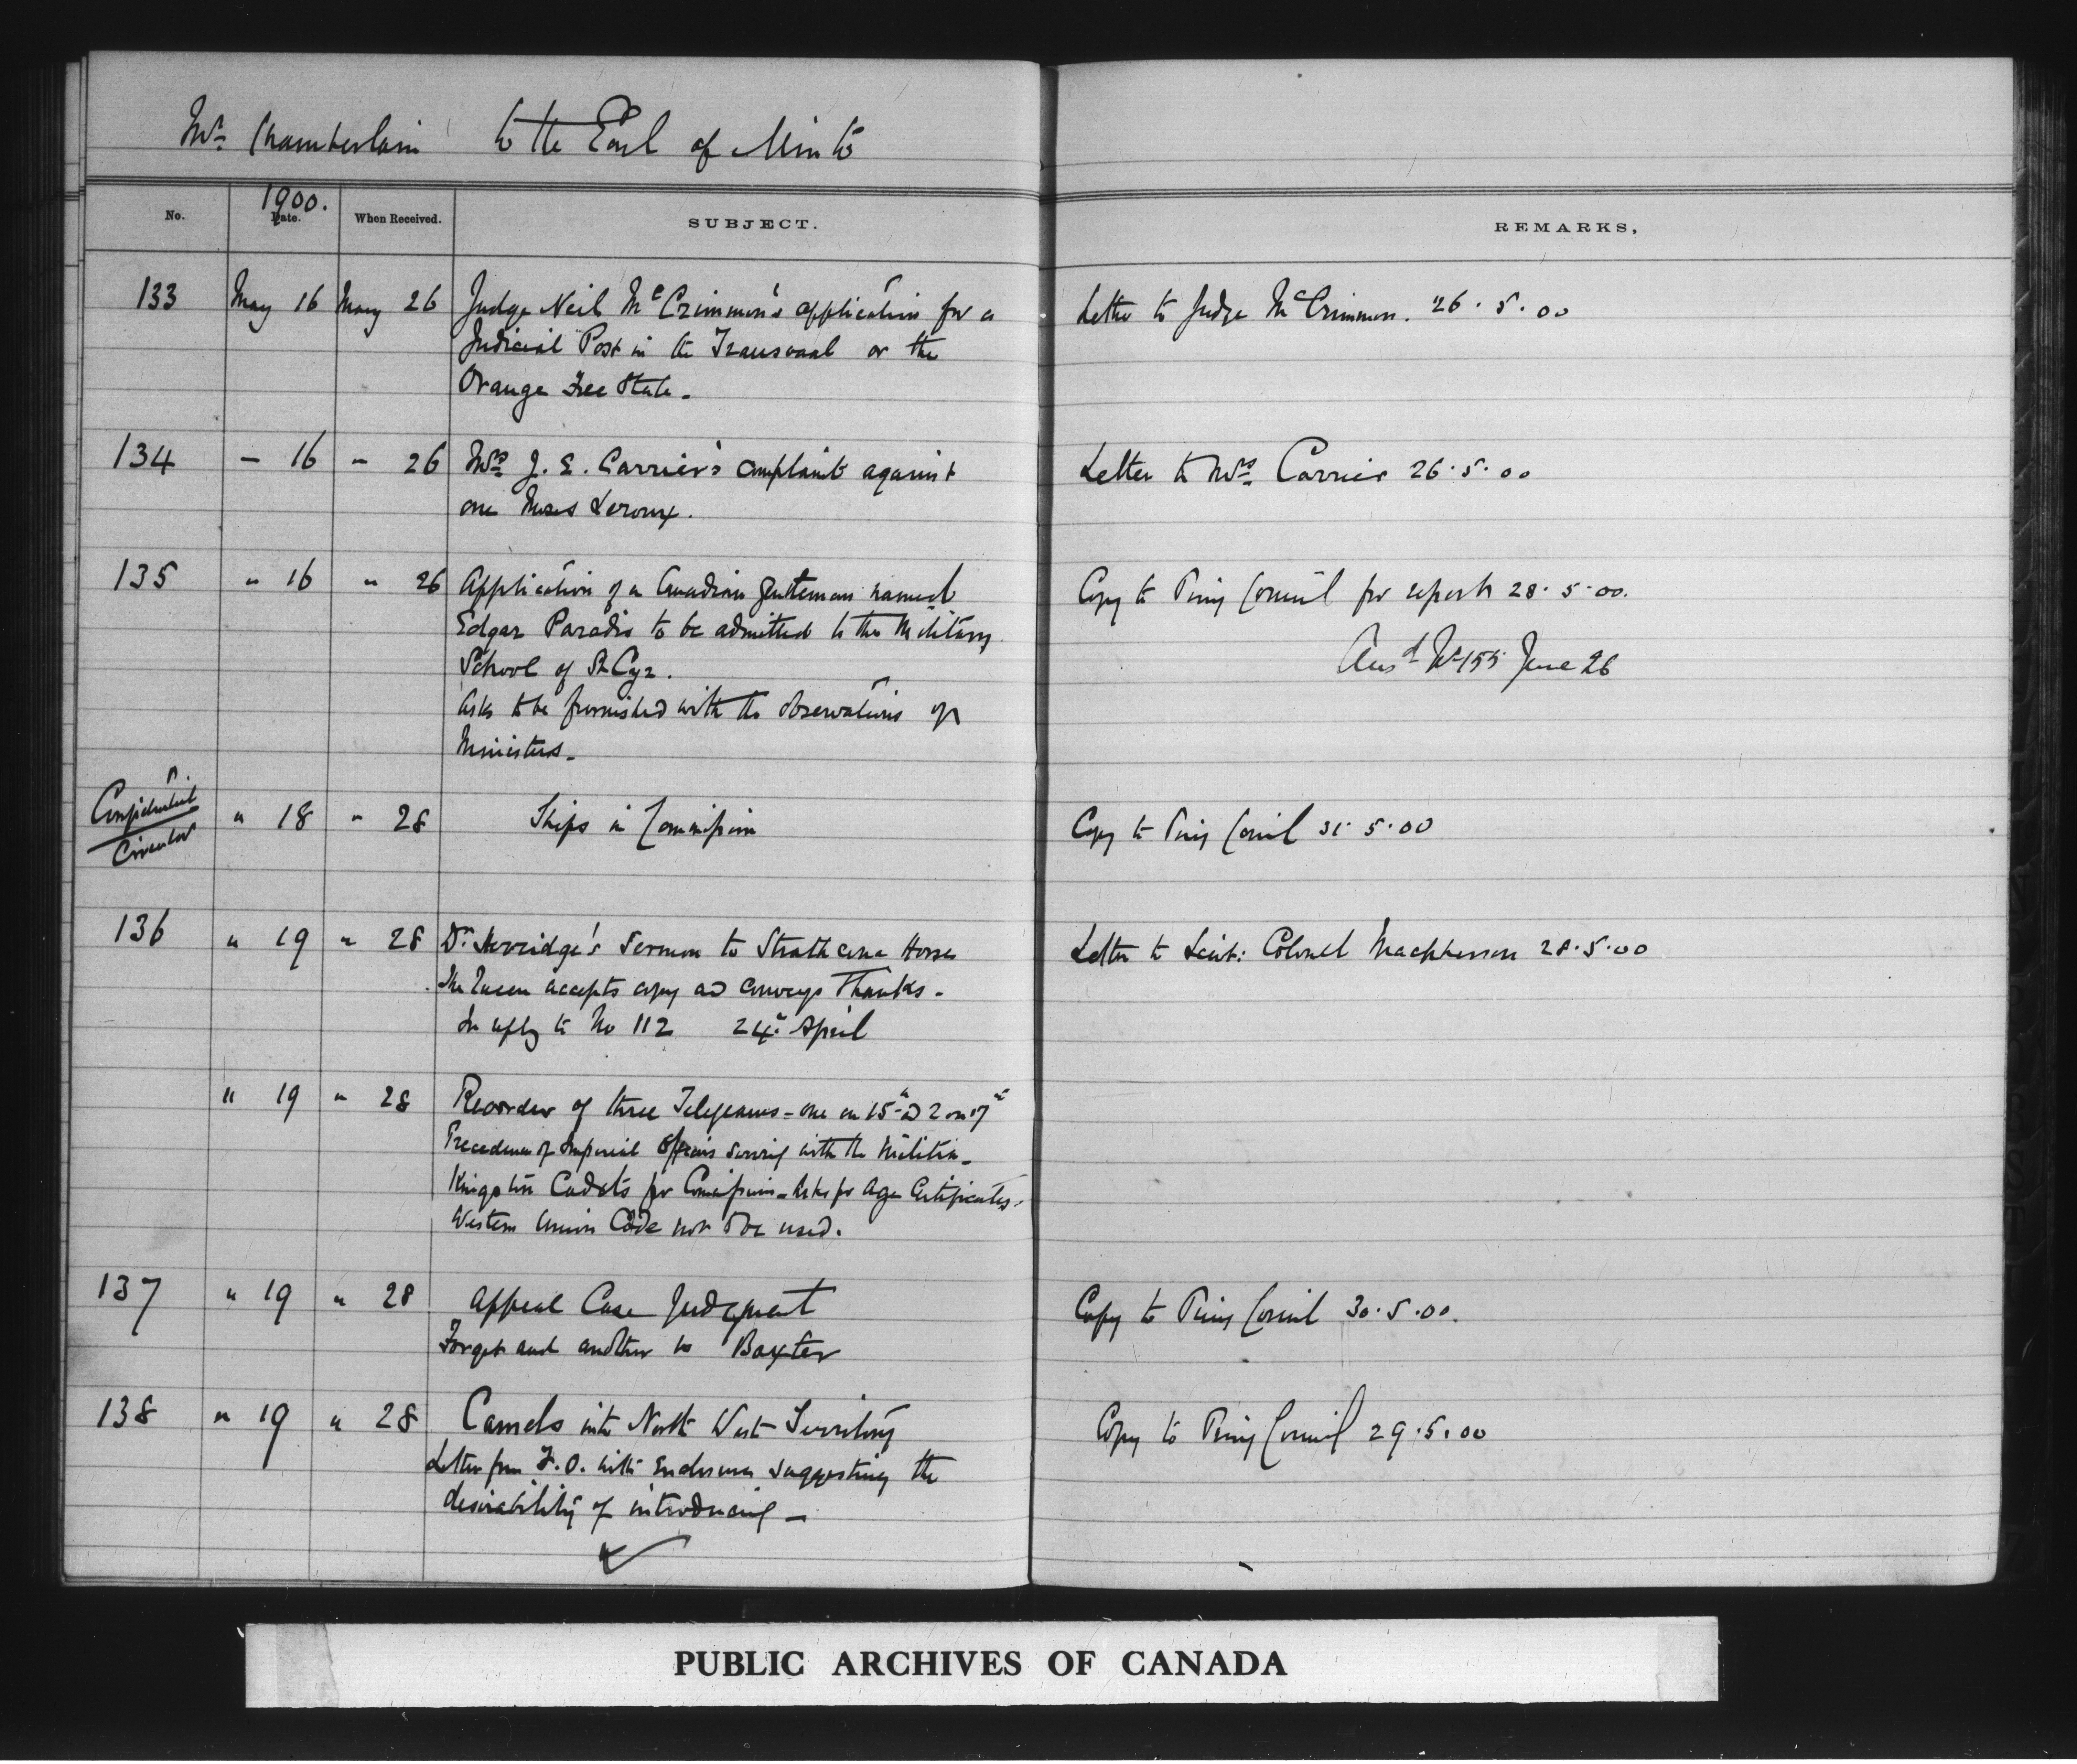 Mr. Chamberlain to the Earl of Minto
1900.
No. Date. When Received. SUBJECT. REMARKS.
133 May 16 May 26 Judge Neil McCrimmon's application for a Letter to Judge McCrimmon. 26.5.00
Judicial Post in the Transvaal or the
Orange Free State.
134 – 16 – 26 Mrs. J. E. Carrier's complaint against Letter to Mrs. Carrier 26.5.00
one Moses Leroux.
135 " 16 " 26 Application of a Canadian gentleman named Copy to Privy Council for report 28.5.00.
Edgar Paradis to be admitted to the Military
Ansd No 155 June 26
School of St Cyr.
Asks to be furnished with the observations of
Ministers.
Confidential
Circular " 18 " 28 Ships in Commission Copy to Privy Council 31.5.00
136 " 19 " 28 Dr. Herridge's Sermon to Strathcona Horse Letter to Lieut: Colonel Macpherson 28.5.00
The Queen accepts copy and conveys Thanks.
In reply to No 112 24th April
" 19 " 28 Recorder of three Telegrams – one on 15th and 2 on 17th
Precedence of Imperial Officers serving with the Militia –
Kingston Cadets for Commission – Asks for Age Certificates.
Western Union Code not to be used.
137 " 19 " 28 Appeal Case Judgment Copy to Privy Council 30.5.00.
Forget and another vs Baxter
138 " 19 " 28 Camels into North West Territory Copy to Privy Council 29.5.00
Letter from F.O. with Enclosures suggesting the
desirability of introducing –
PUBLIC ARCHIVES OF CANADA